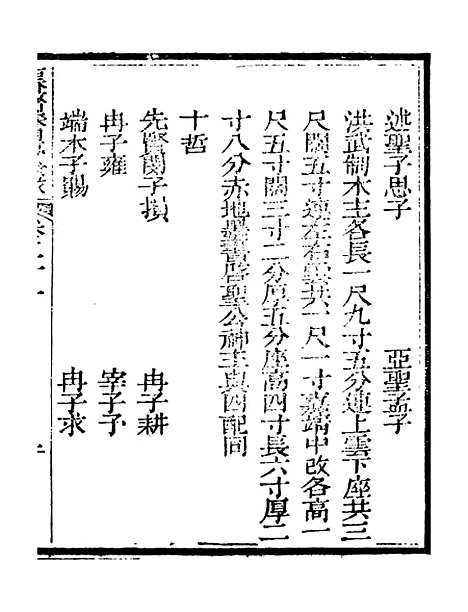 述聖子思子　亞聖孟子
洪武制木主各長一尺九寸五分連上雲下座共三
尺闊五寸連左右雲共一尺一寸嘉靖中改各高一
尺五寸闊三寸二分厚五分座高四寸長六寸厚二
寸八分赤地墨書啓聖公神主與四配同
十哲
先賢閔子損　冉子耕
冉子雍　宰子予
端木子賜　冉子求